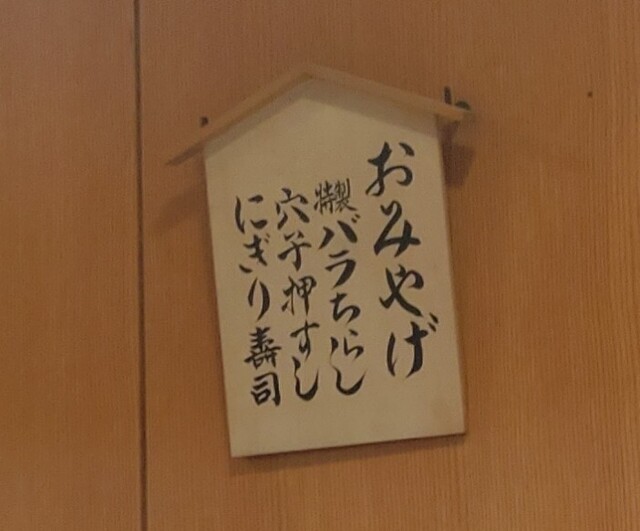 おみやげ
特製バラちらし
穴子押すし
にぎり寿司